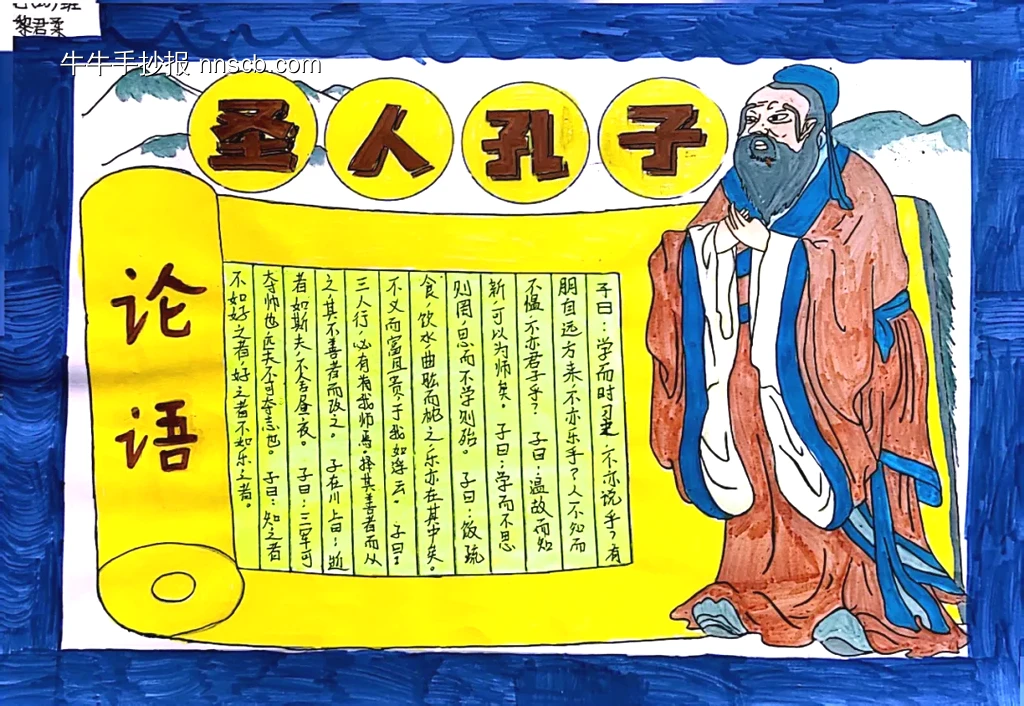 黎君柔
牛牛手抄报 nnscb.com
圣人孔子
论语
子曰：学而时习之，不亦说乎？有
朋自远方来，不亦乐乎？人不知而
不愠，不亦君子乎？ 子曰：温故而知
新，可以为师矣。 子曰：学而不思
则罔，思而不学则殆。 子曰：饭疏
食，饮水，曲肱而枕之，乐亦在其中矣。
不义而富且贵，于我如浮云。 子曰：
三人行，必有有我师焉。择其善者而从
之，其不善者而改之。 子在川上曰：逝
者如斯夫，不舍昼夜。 子曰：三军可
夺帅也，匹夫不可夺志也。 子曰：知之者
不如好之者，好之者不如乐之者。